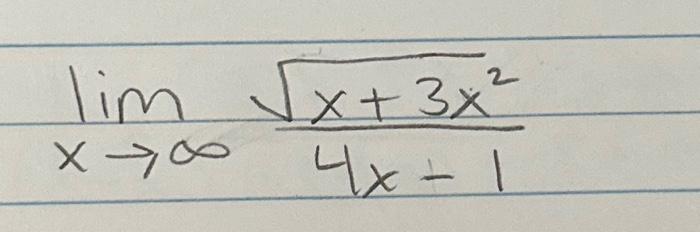 lim √x + 3x²
x → ∞ 4x - 1